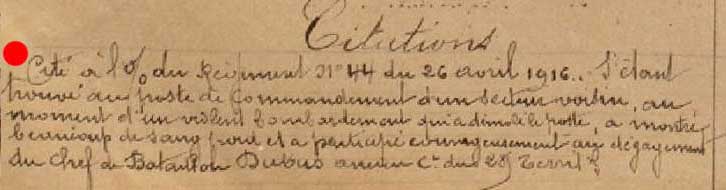 Citations
Cité à l'o/o du Régiment N° 44 du 26 avril 1916.. S'étant
trouvé au poste de Commandement d'un secteur voisin, au
moment d'un violent bombardement qui a démoli le poste, a montré
beaucoup de sang froid et a participé courageusement au dégagement
du Chef de Bataillon Dubus ancien Ct du Territ